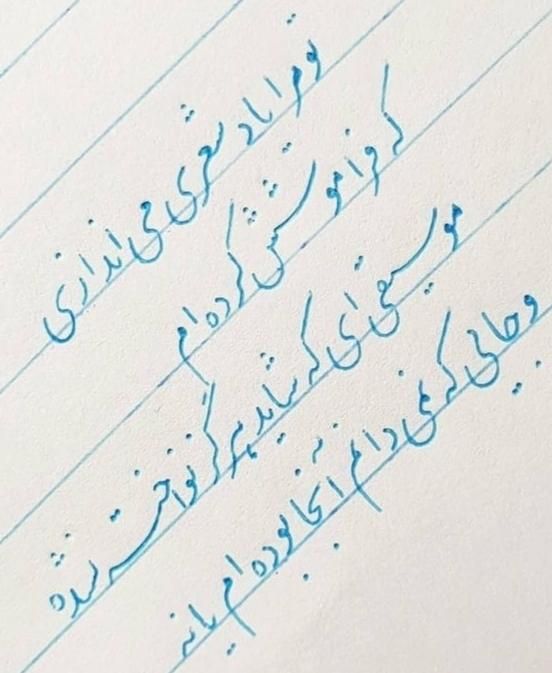 تو مرا یاد شعری می اندازی
که فراموشش کرده ام
موسیقی ای که شاید هرگز نواخته نشده
و جایی که نمی دانم آنجا بوده ام یا نه